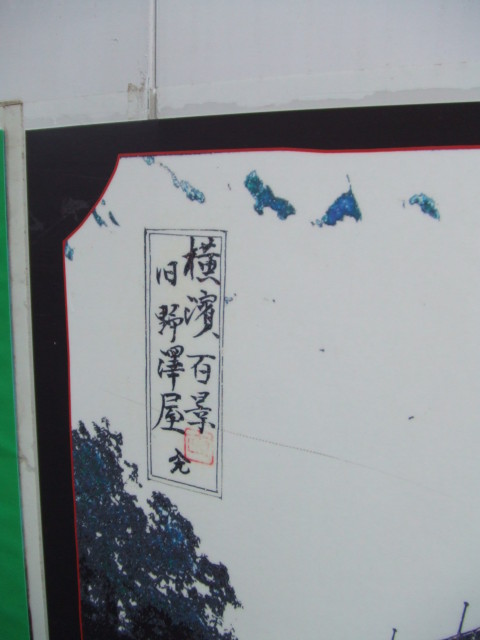 横濱百景
旧野澤屋